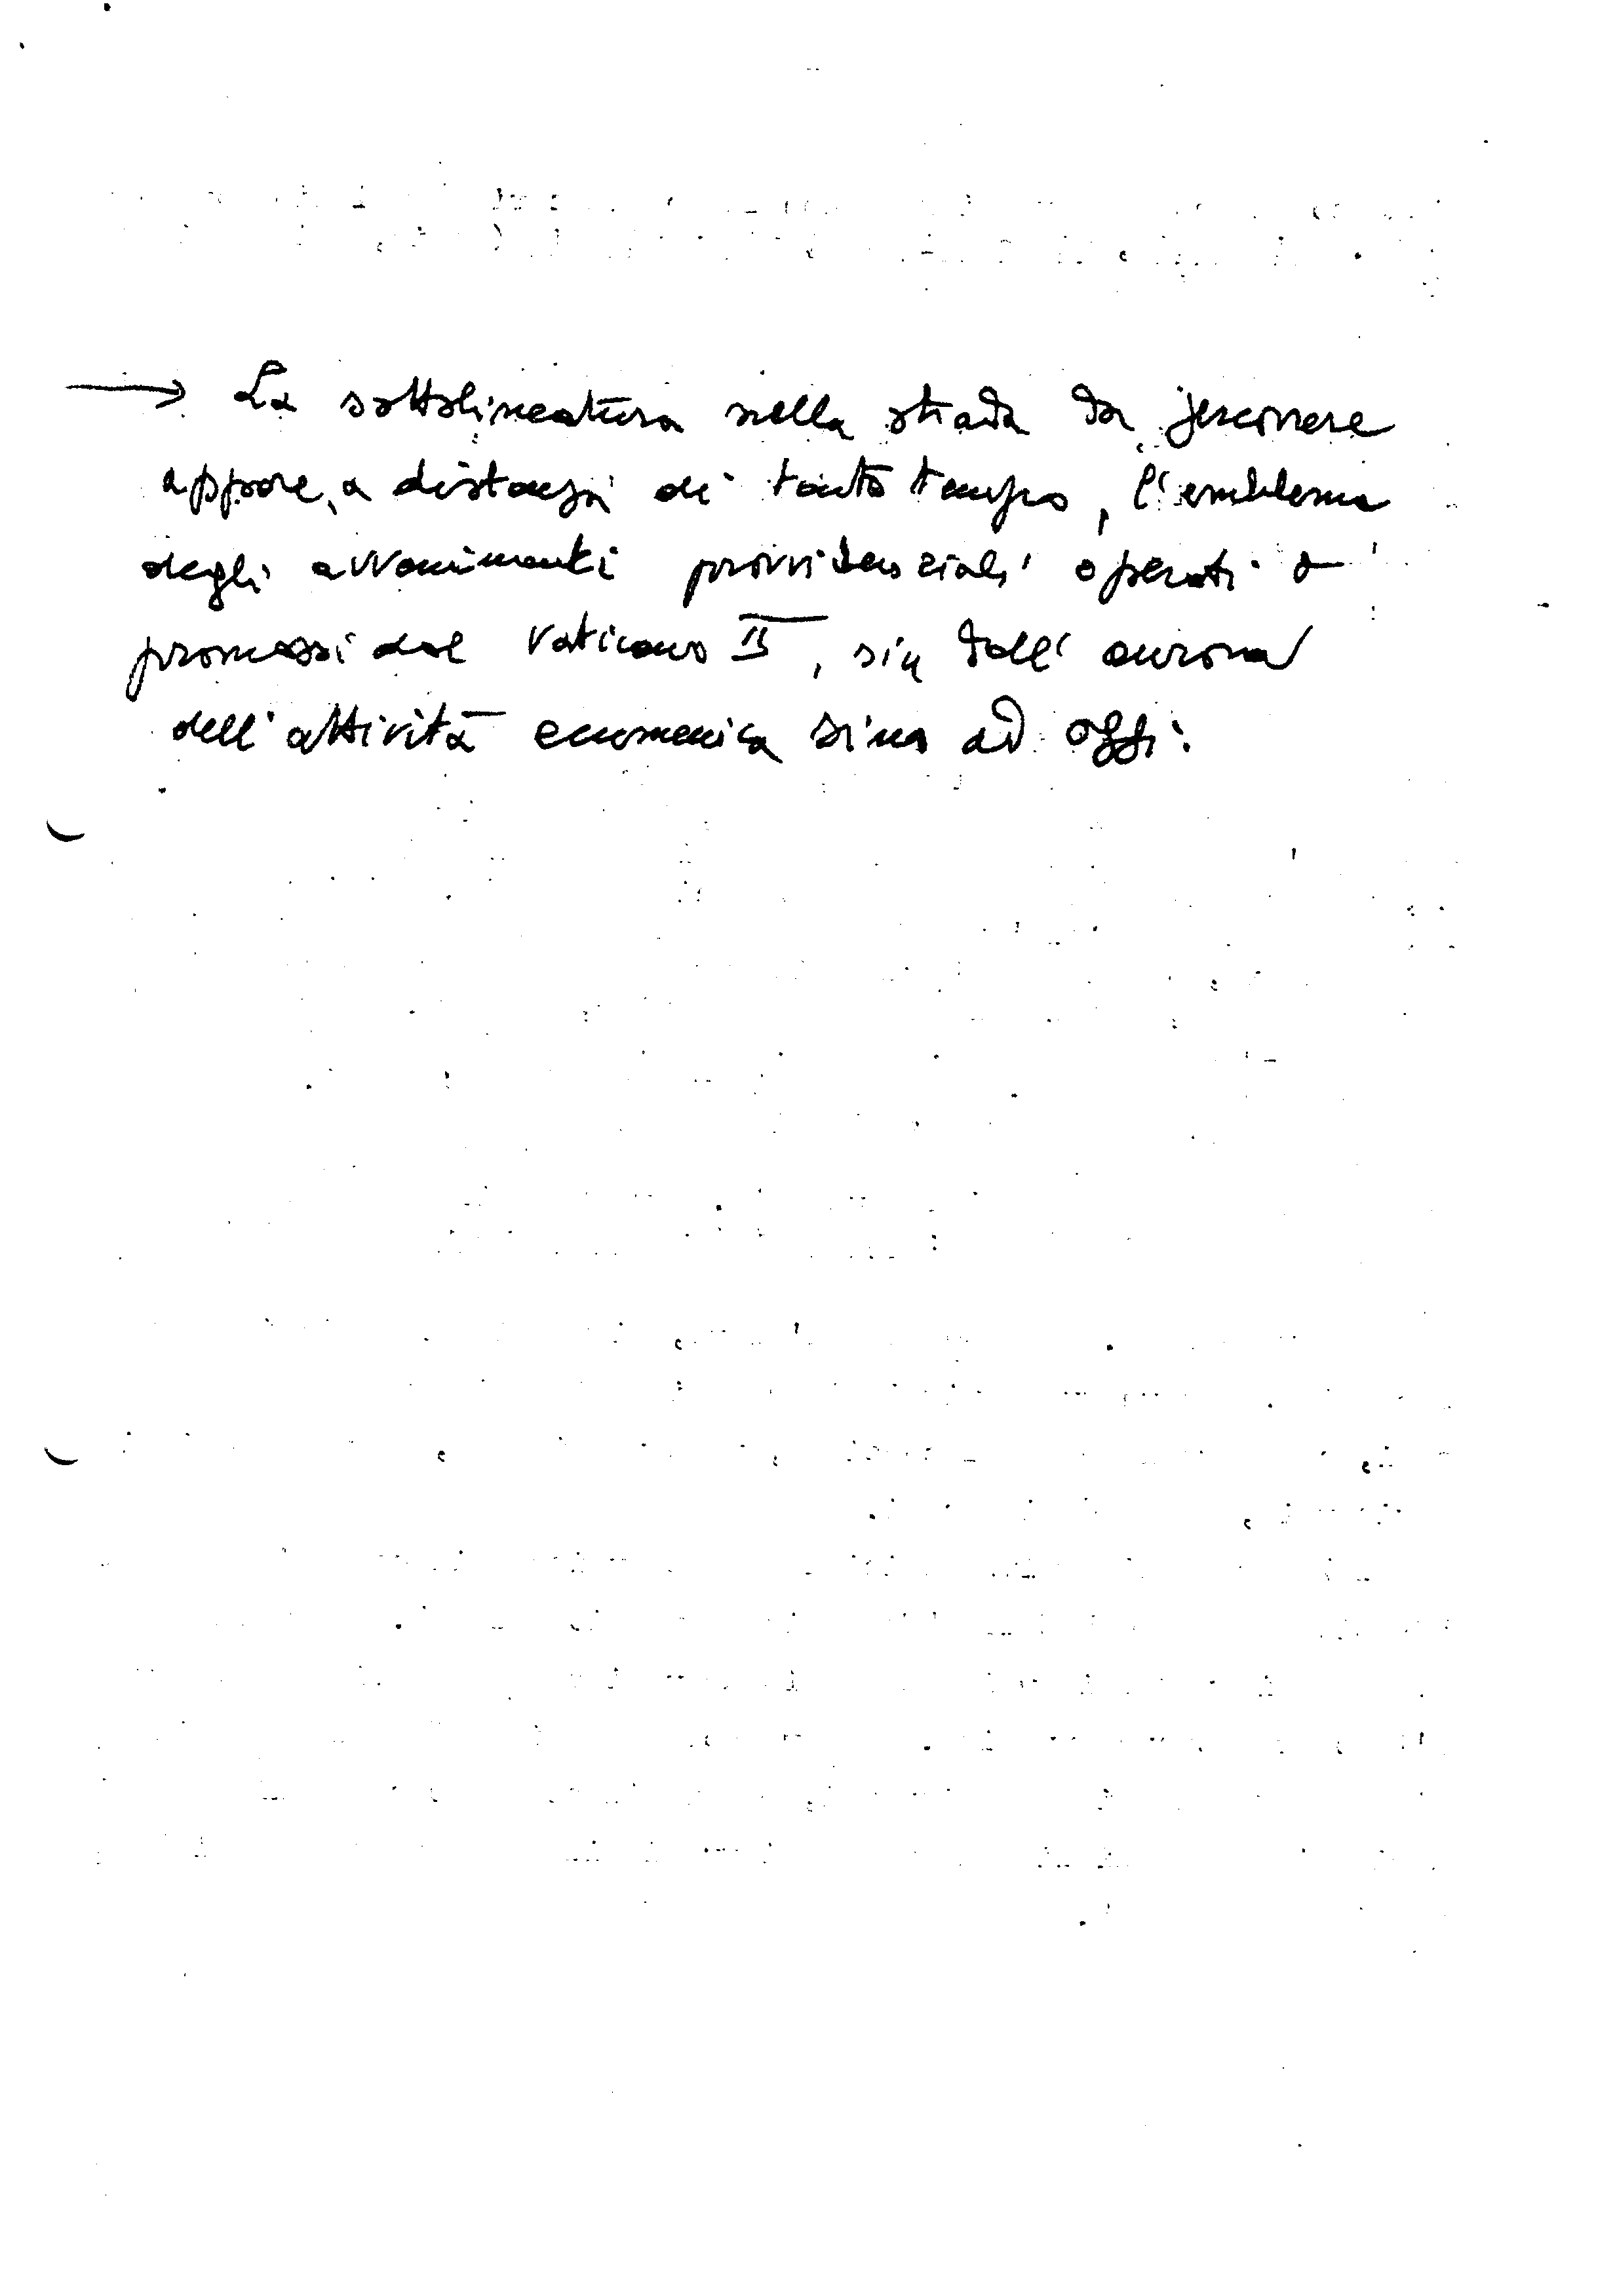 → La sottolineatura sulla strada da percorrere
appare, a distanza di tanto tempo, l'emblema
degli avvenimenti provvidenziali operati o
promossi dal Vaticano II, sin dall'aurora
dell'attività ecumenica sino ad oggi.